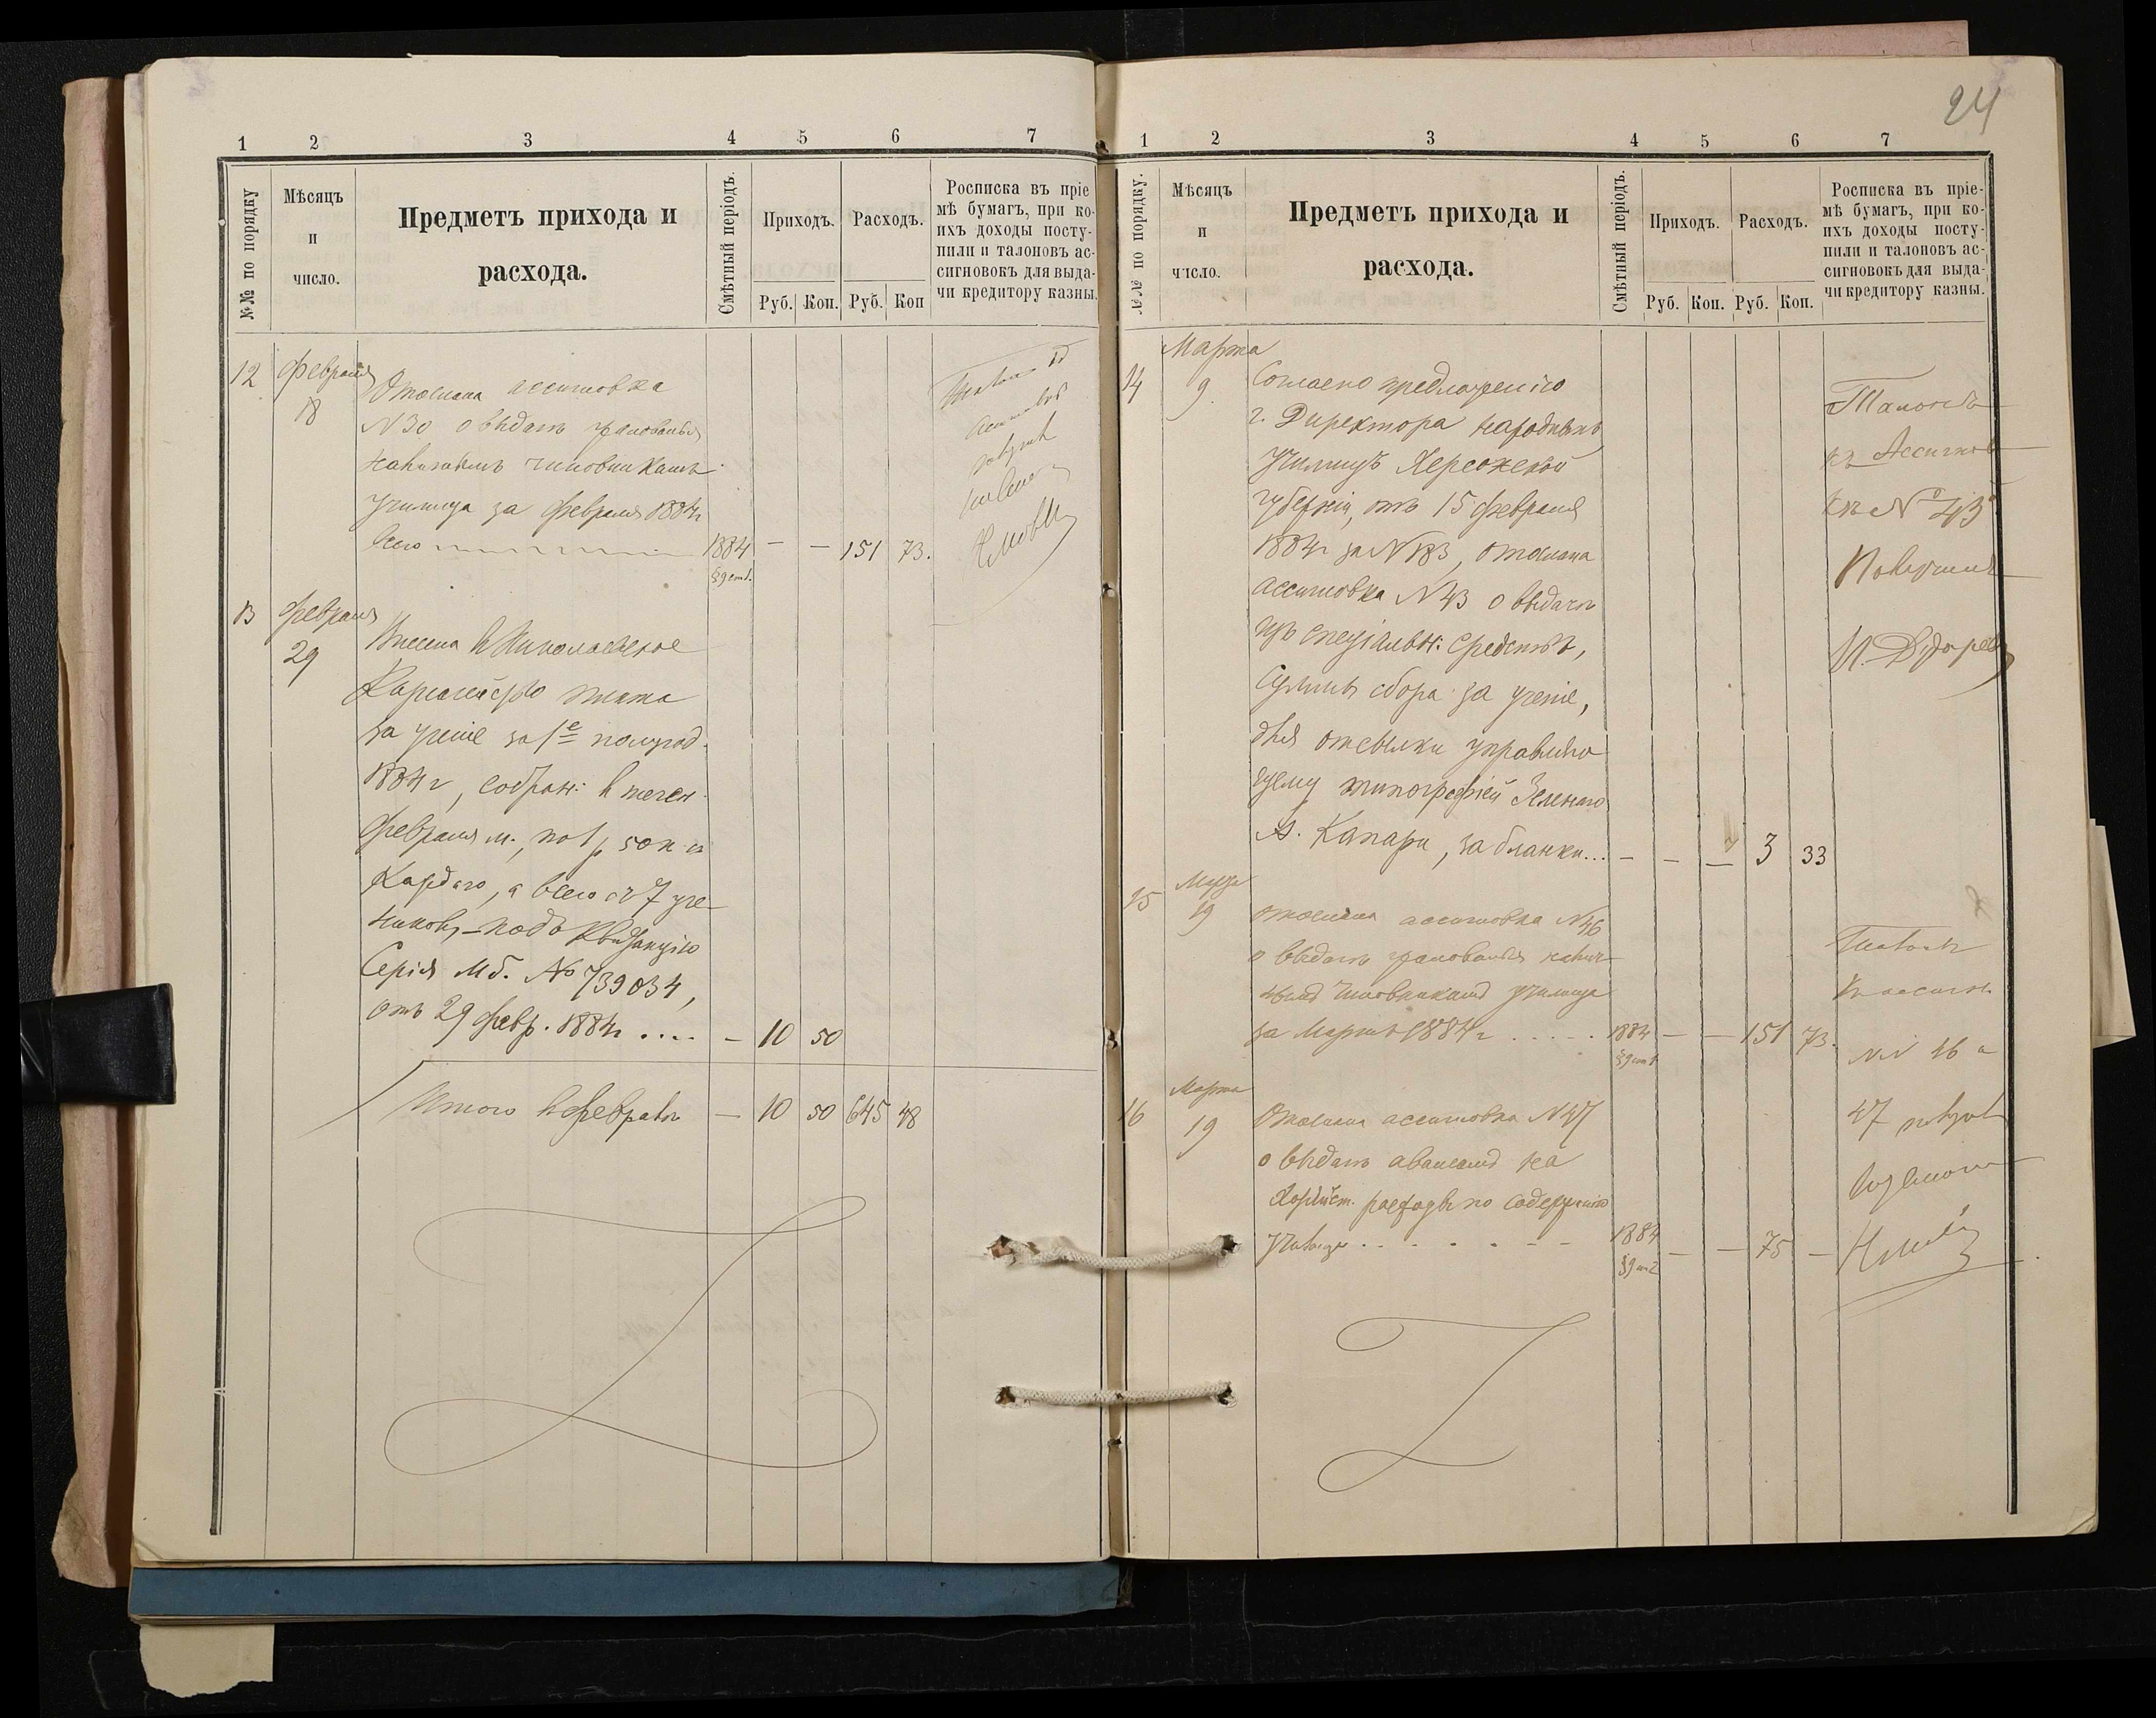 1 2 3 4 5 6 7
№№ по порядку
Мѣсяцъ
и
число.
Предметъ прихода и
расхода.
Смѣтный періодъ.
Приходъ. Расходъ.
Руб. Коп. Руб. Коп
Росписка въ пріе
мѣ бумагъ, при ко-
ихъ доходы посту-
пили и талоновъ ас-
сигновокъ для выда-
чи кредитору казны.
12 Февраля
18
Отослана ассигновка
N 30 о выдачѣ жалованья
наличнымъ чиновникамъ
училища за Февраль 1884 г
Всего 1884 — — 151 73.
§9 ст 1.
13 Февраля
29
Внесена в Николаевское
Казначейство плата
за ученіе за 1е полугод.
1884 г, собран: в течен.
Февраля м., по 1 р 50 к съ
Каждаго, а всего съ 7 уче-
никовъ, – подъ Квитанцію
Серія Мб. № 739034,
отъ 29 февр. 1884 г .... – 10 50
Итого в Февралѣ — 10 50 645 48
24
1 2 3 4 5 6 7
№№ по порядку.
Мѣсяцъ
и
число.
Предметъ прихода и
расхода.
Смѣтный періодъ.
Приходъ. Расходъ.
Руб. Коп. Руб. Коп.
Росписка въ пріе-
мѣ бумагъ, при ко-
ихъ доходы посту-
пили и талоновъ ас-
сигновокъ для выда-
чи кредитору казны.
Марта
14 9.
Согласно предложенію
г. Директора народныхъ
Училищъ Херсонской
губерніи, отъ 15 Февраля
1884 г за N 183, отослана
ассигновка N 43 о выдачѣ
изъ спеціальн: средствъ,
суммы сбора за ученіе,
для отсылки управляю-
щему типографіей Зеленаго
А. Капари, за бланки... – – — 3 33
Талонъ
къ Ассигнов
кѣ № 43
Получилъ
15 Марта
19
Отослана ассигновка N 46
о выдачѣ жалованья налич-
нымъ чиновникамъ училища
за Мартъ 1884 г ..... 1884 – — 151 73.
§9 ст 1
Талонъ
къ ассигн.
NN 46 и
47 получ
16 Марта
19
Отослана ассигновка N 47
о выдачѣ авансомъ на
Хозяйст. расходы по содержанію
Училища 1884 — — 75 –
§9 ст 2